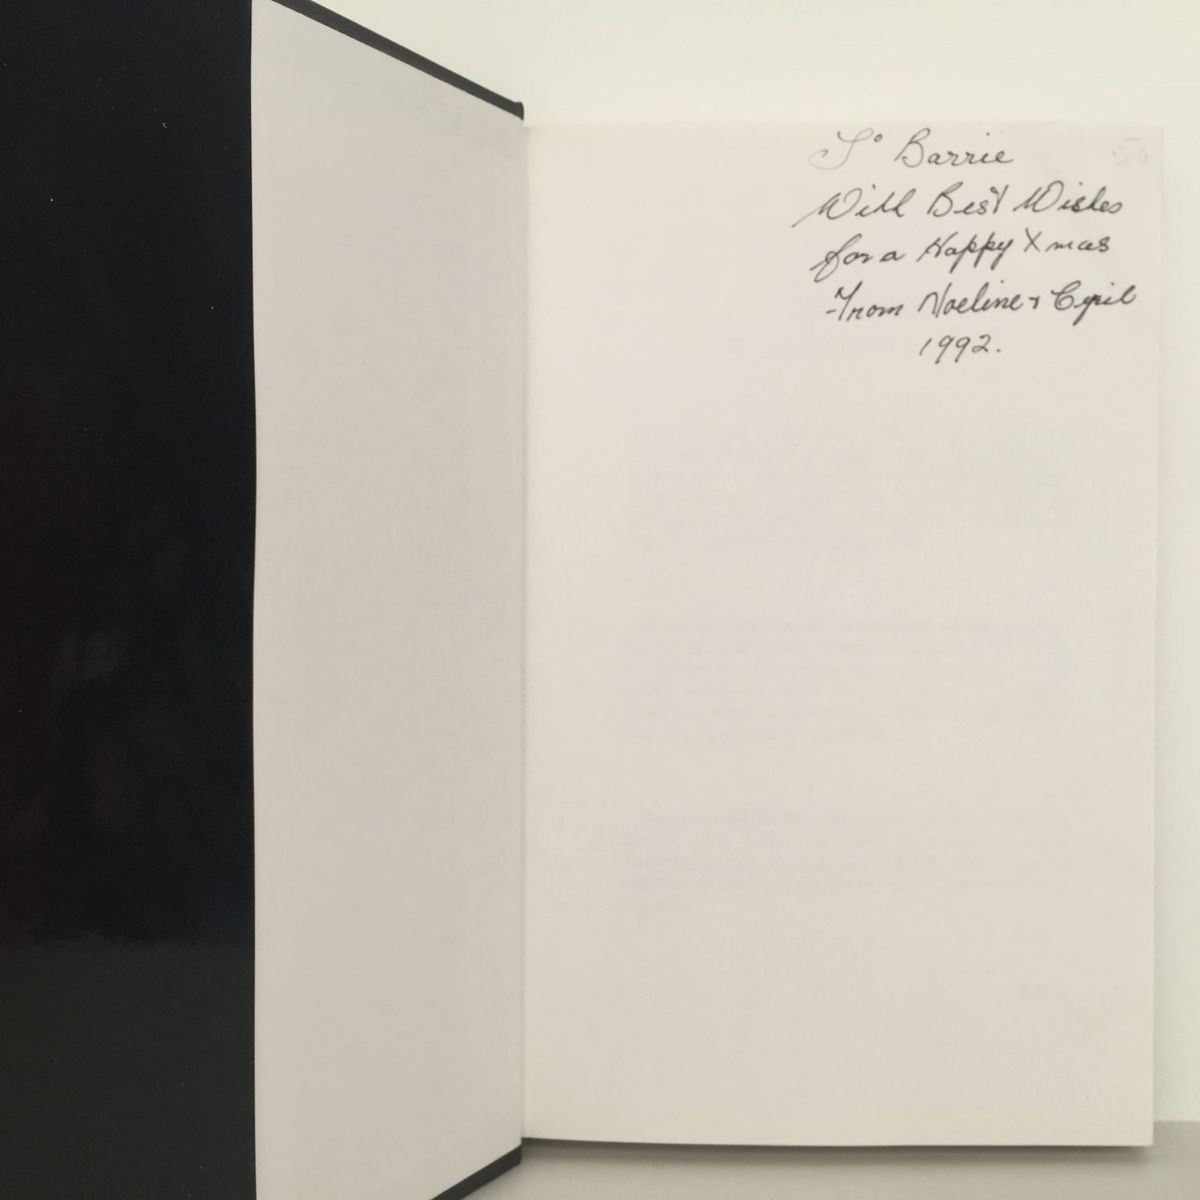 To Barrie
With Best Wishes
for a Happy Xmas
From Noeline & Cyril
1992.